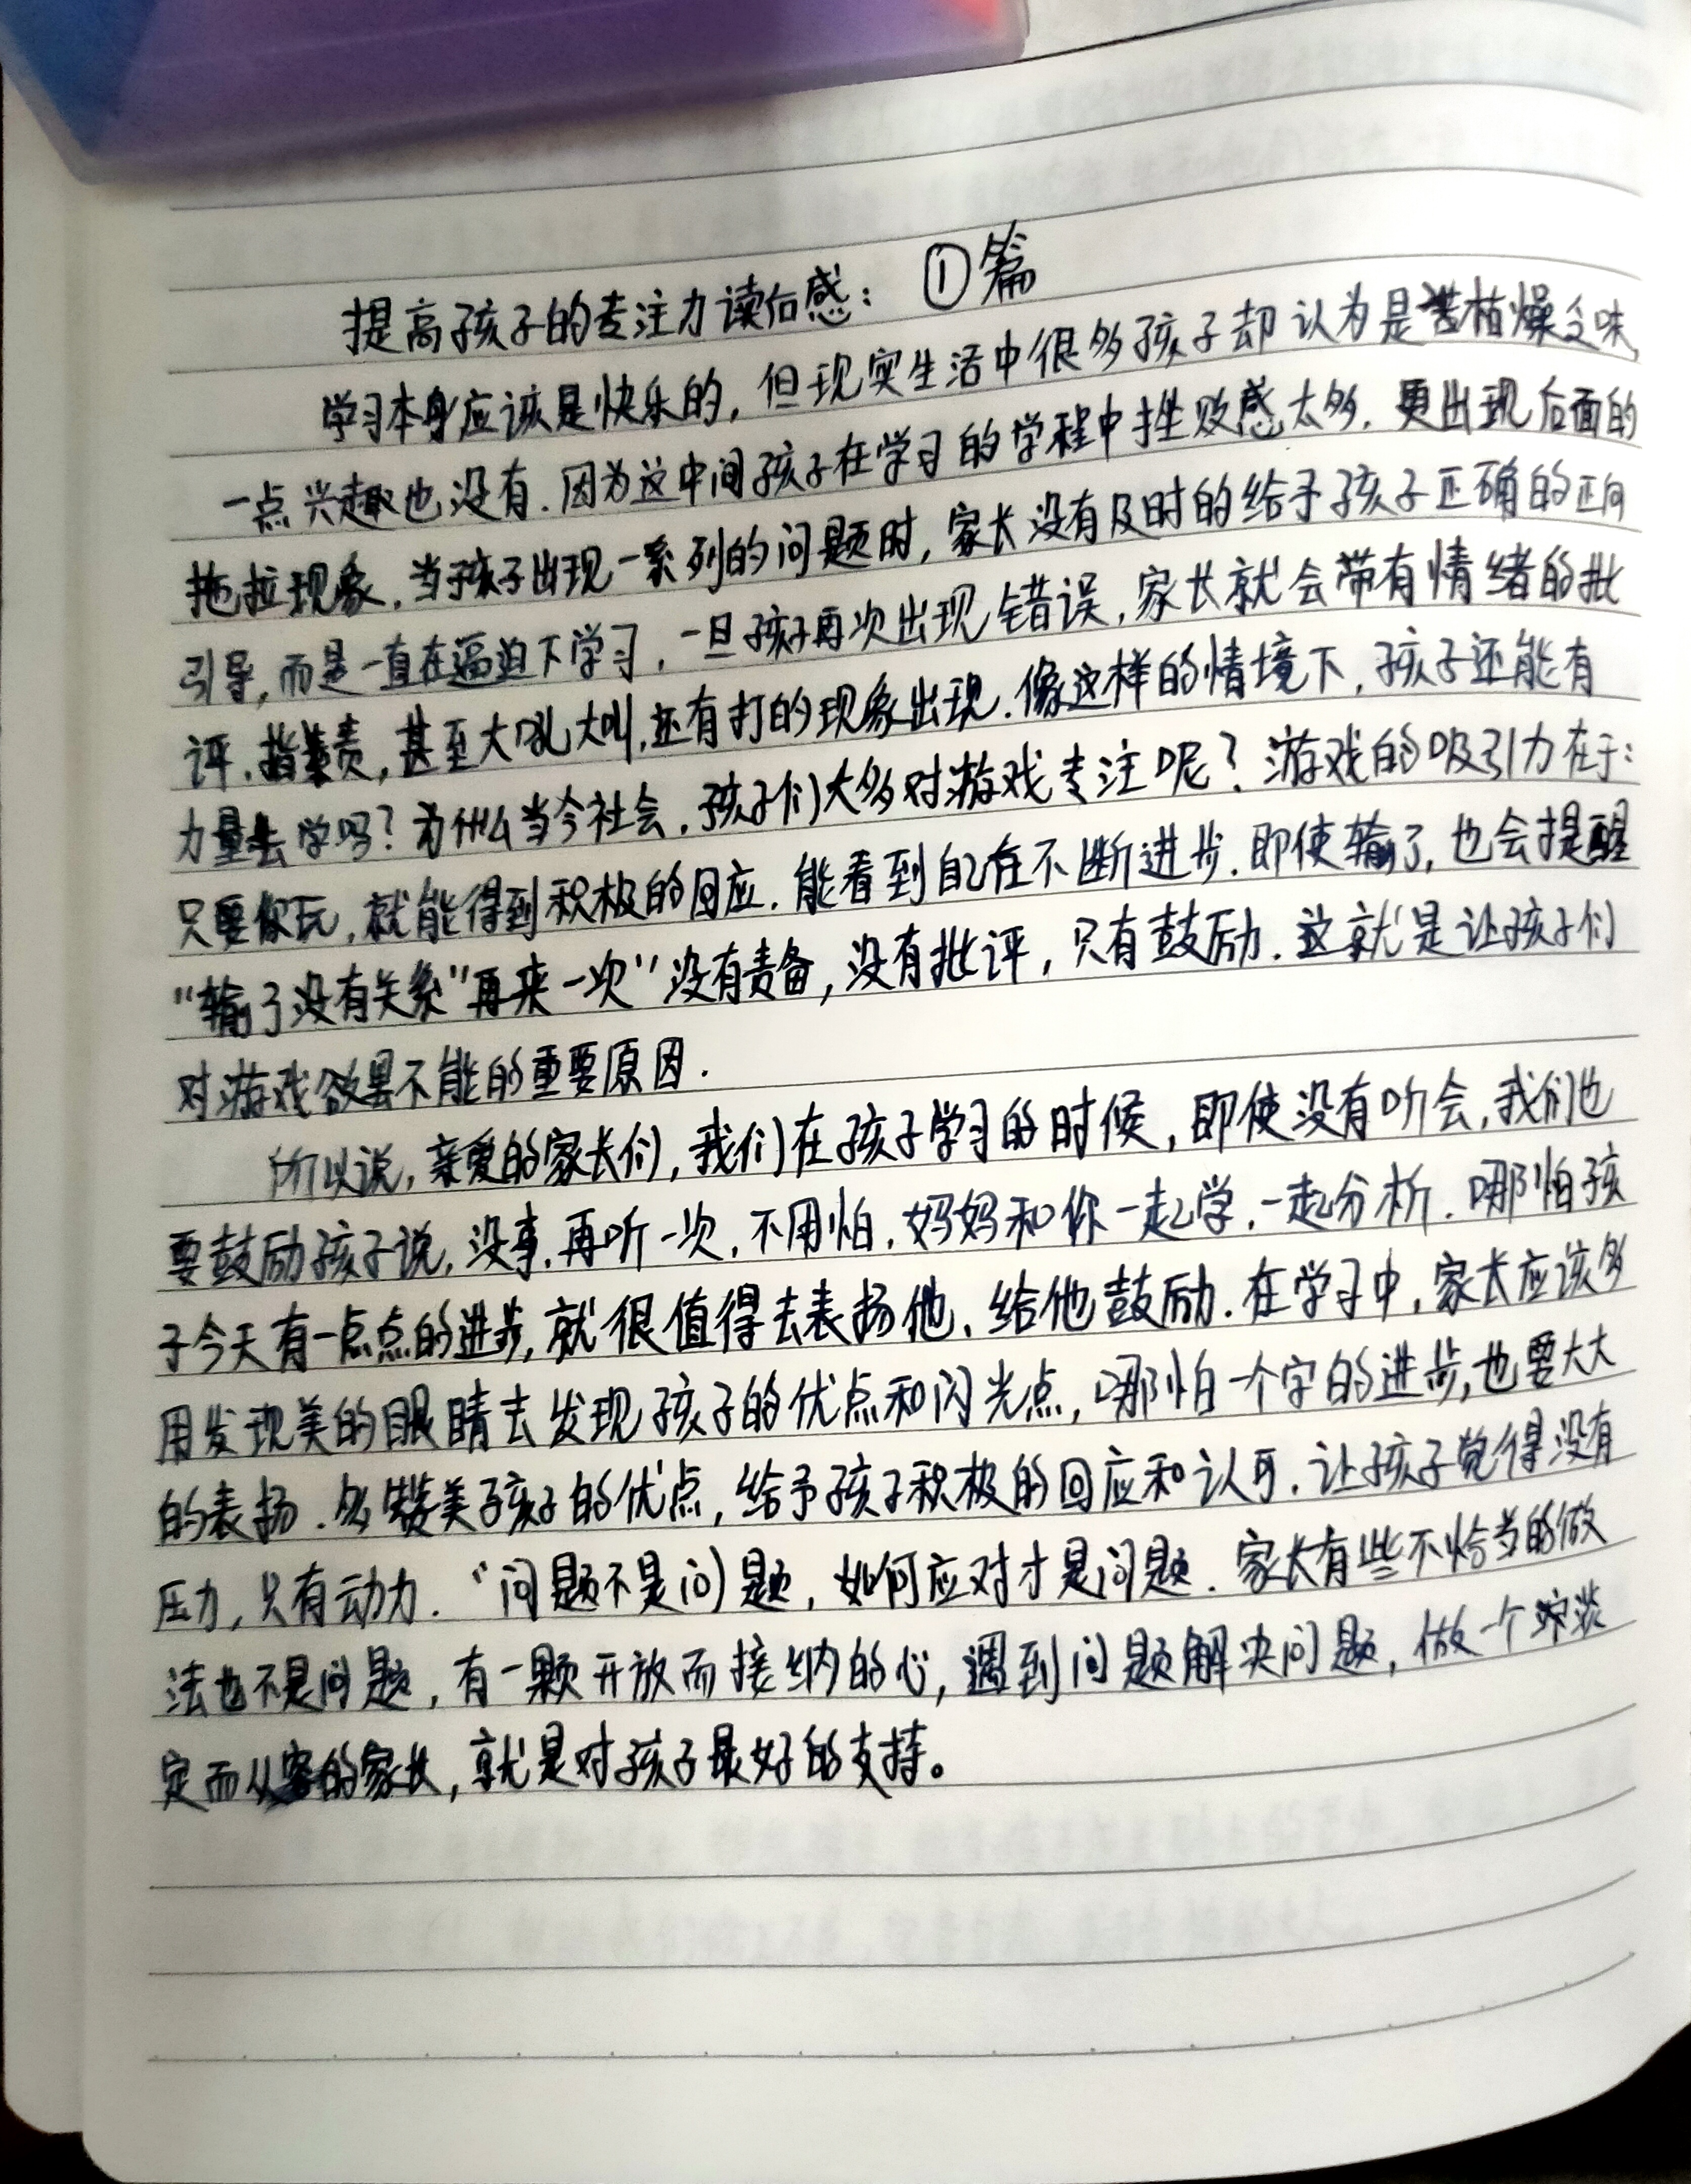 提高孩子的专注力读后感：①篇
学习本身应该是快乐的，但现实生活中很多孩子却认为是枯燥乏味，
一点兴趣也没有．因为这中间孩子在学习的学程中挫败感太多．更出现后面的
拖拉现象．当孩子出现一系列的问题时，家长没有及时的给予孩子正确的正向
引导，而是一直在逼迫下学习．一旦孩子再次出现错误．家长就会带有情绪的批
评．指责，甚至大吼大叫．还有打的现象出现．像这样的情境下．孩子还能有
力量去学吗？为什么当今社会．孩子们大多对游戏专注呢？游戏的吸引力在于：
只要你玩，就能得到积极的回应．能看到自己在不断进步．即使输了，也会提醒
“输了没有关系”再来一次”没有责备，没有批评，只有鼓励．这就是让孩子们
对游戏欲罢不能的重要原因．
所以说，亲爱的家长们，我们在孩子学习的时候，即使没有听会，我们也
要鼓励孩子说，没事．再听一次．不用怕．妈妈和你一起学．一起分析．哪怕孩
子今天有一点点的进步，就很值得去表扬他、给他鼓励．在学习中，家长应该多
用发现美的眼睛去发现孩子的优点和闪光点，哪怕一个字的进步，也要大大
的表扬．多赞美子孩子的优点，给予孩子积极的回应和认可．让孩子觉得没有
压力，只有动力．“问题不是问题，如何应对才是问题．家长有些不恰当的做
法也不是问题，有一颗开放而接纳的心，遇到问题解决问题，做一个淡
定而从容的家长，就是对孩子最好的支持。